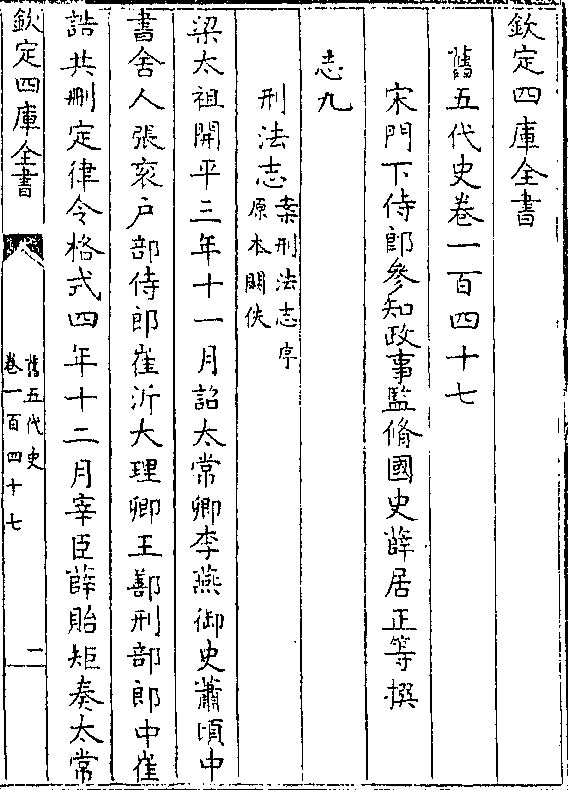 欽定四庫全書
舊五代史卷一百四十七
宋門下侍郎參知政事監脩國史薛居正等撰
志九
刑法志案刑法志序
原本闕佚
梁太祖開平三年十一月詔太常卿李燕御史蕭頃中
書舍人張衮户部侍郎崔沂大理卿王鄯刑部郎中崔
誥共刪定律令格式四年十二月宰臣薛貽矩奏太常
欽定四庫全書
舊五代史
卷一百四十七